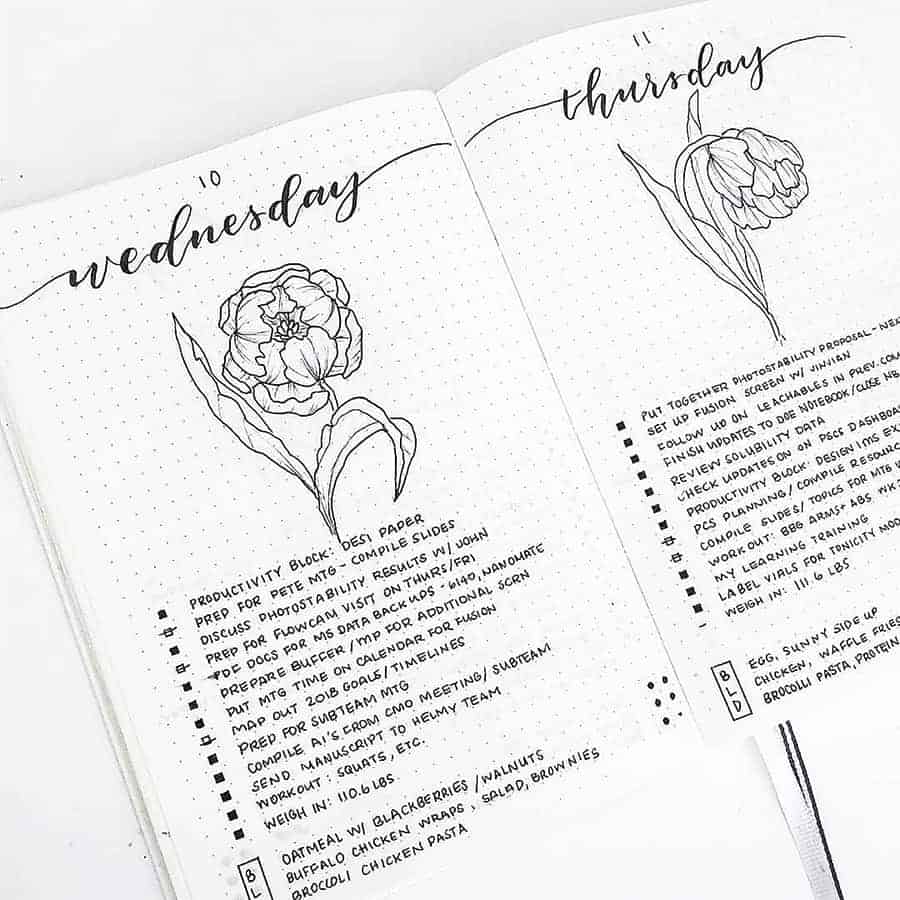 10
wednesday
PRODUCTIVITY BLOCK: DESI PAPER
PREP FOR PETE MTG - COMPILE SLIDES
DISCUSS PHOTOSTABILITY RESULTS W/ JOHN
PREP FOR FLOWCAM VISIT ON THURS/FRI
PDF DOCS FOR MS DATA BACKUPS - 6140, NANOMATE
PREPARE BUFFER/MP FOR ADDITIONAL SCRN
PUT MTG TIME ON CALENDAR FOR FUSION
MAP OUT 2018 GOALS/TIMELINES
PREP FOR SUBTEAM MTG
COMPILE AI'S FROM CMO MEETING/SUBTEAM
SEND MANUSCRIPT TO HELMY TEAM
WORKOUT: SQUATS, ETC.
WEIGH IN: 110.6 LBS
B OATMEAL W/ BLACKBERRIES/WALNUTS
L BUFFALO CHICKEN WRAPS, SALAD, BROWNIES
BROCCOLI CHICKEN PASTA
11
thursday
PUT TOGETHER PHOTOSTABILITY PROPOSAL - NEX
SET UP FUSION SCREEN W/ VIVIAN
FOLLOW UP ON LEACHABLES IN PREV.
FINISH UPDATES TO DOE NOTEBOOK/CLOSE NB
REVIEW SOLUBILITY DATA
CHECK UPDATES ON PSCS DASHBOA
PRODUCTIVITY BLOCK: DESIGN IMS EX
PCS PLANNING/COMPILE RESOURC
COMPILE SLIDES/TOPICS FOR MTG W
WORKOUT: BBG ARMS + ABS WK
MY LEARNING TRAINING
LABEL VIALS FOR TONICITY MOD
WEIGH IN: 111.6 LBS
B EGG, SUNNY SIDE UP
L CHICKEN, WAFFLE FRIES
D BROCOLLI PASTA, PROTEIN